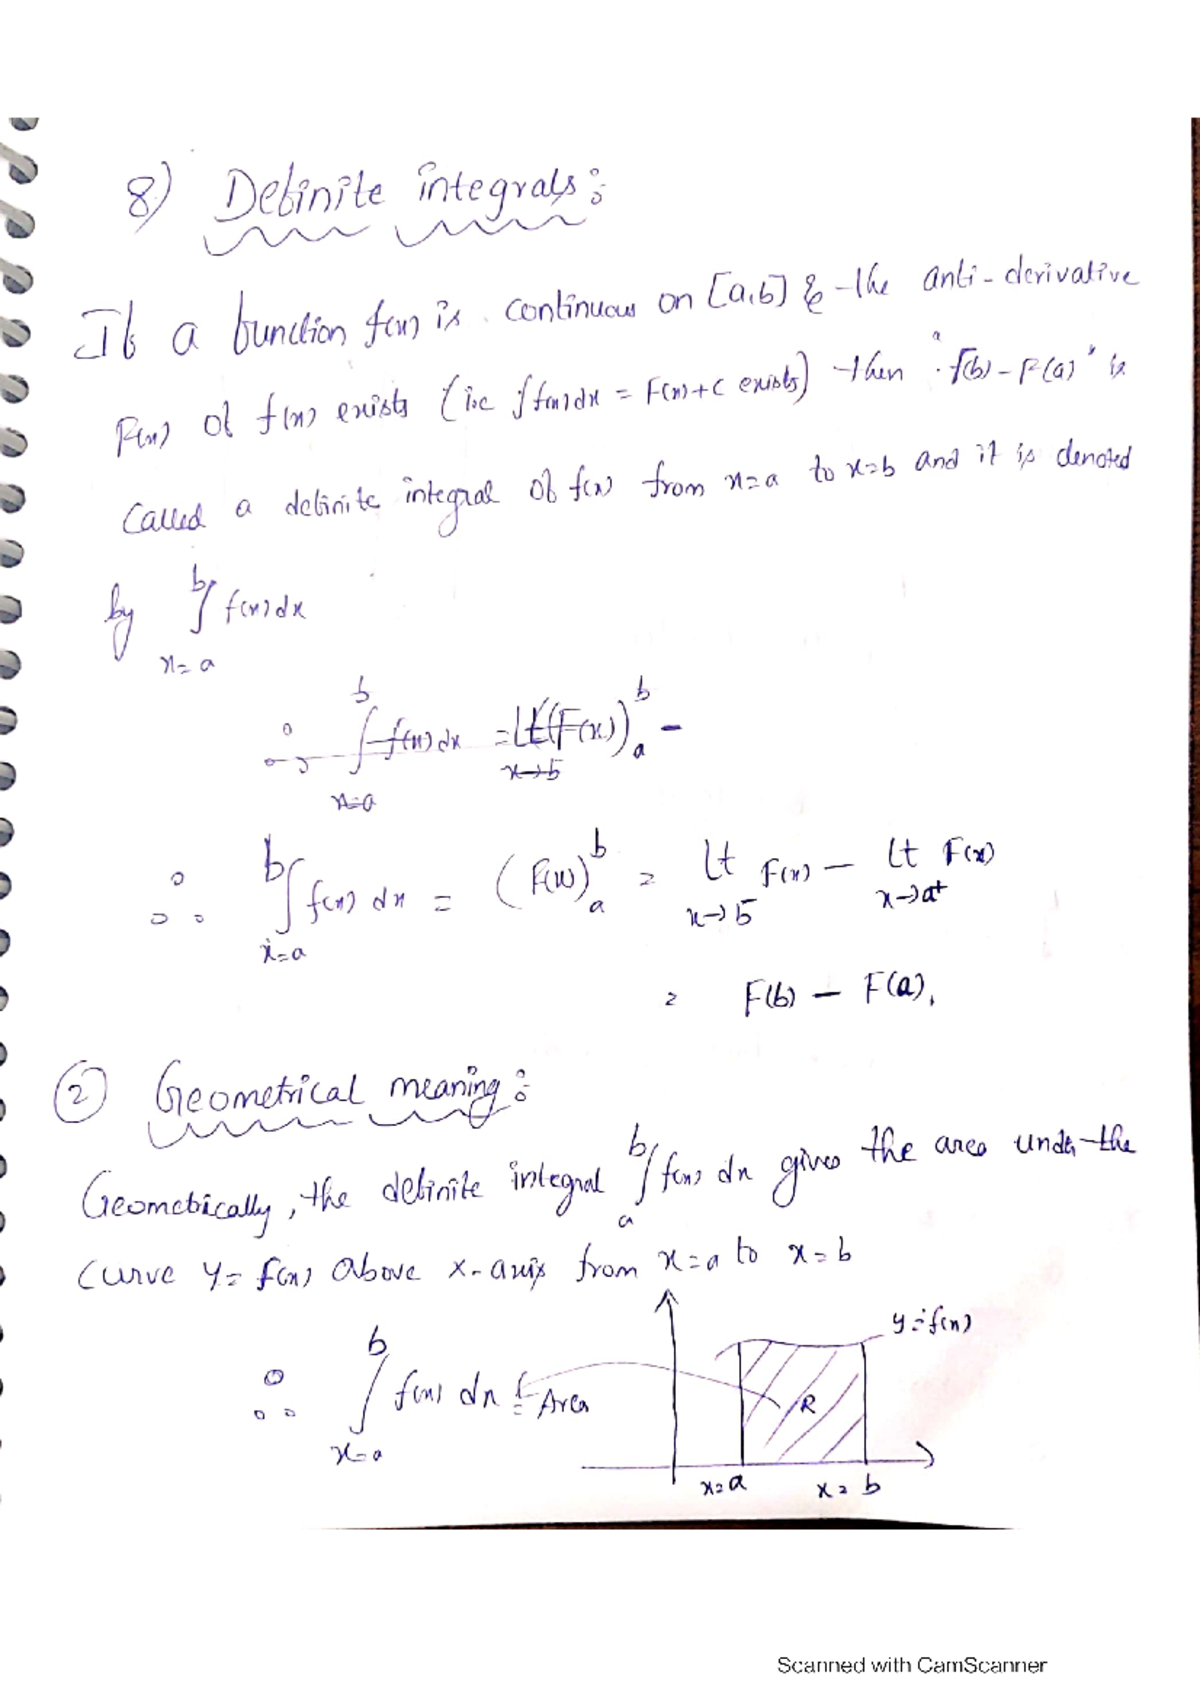 8) Definite integrals :
If a function f(x) is continuous on [a,b] & the anti-derivative
F(x) of f(x) exists (i.e ∫f(x)dx = F(x)+c exists) then "f(b) - F(a)" is
called a definite integral of f(x) from x=a to x=b and it is denoted
by ∫_{x=a}^{b} f(x)dx
∴ ∫_{x=a}^{b} f(x)dx = Lt_{x→b} (F(x))_a^b -
∴ ∫_{x=a}^{b} f(x) dx = (F(x))_a^b = Lt_{x→b^-} F(x) - Lt_{x→a+} F(x)
= F(b) - F(a).
② Geometrical meaning :
Geometically, the definite integral ∫_a^b f(x) dx gives the area under the
curve y = f(x) above x-axis from x=a to x=b
∴ ∫_{x=a}^{b} f(x) dx = Area
y=f(x)
R
x=a x=b
Scanned with CamScanner